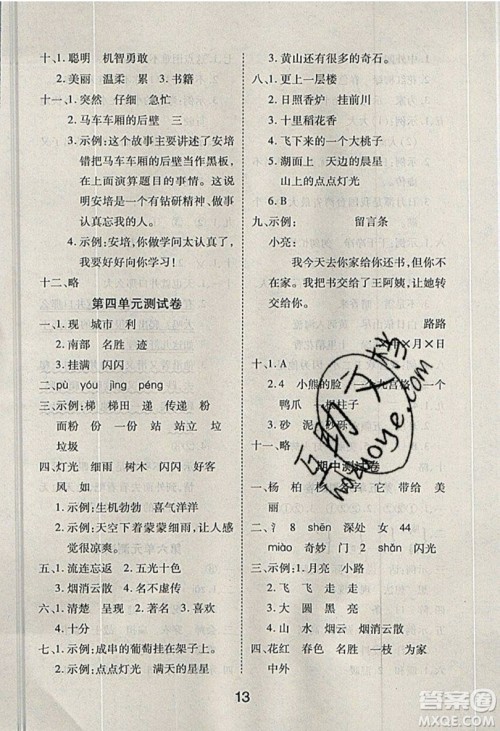 十、1. 聪明 机智勇敢
2. 美丽 温柔 累 3. 书籍
十一、1. 突然 仔细 急忙
2. 马车车厢的后壁 三
3. 示例:这个故事主要讲述了安培
错把马车车厢的后壁当作黑板,
在上面演算题目的事情。这说
明安培是一个有钻研精神、做事
认真忘我的人。
4. 示例:安培,你做学问太认真了,
我要好好向你学习!
十二、略
第四单元测试卷
一、1. 现 城市 利
2. 南部 名胜 迹
3. 挂满 闪闪
二、pù yóu jìng péng
三、示例:梯 梯田 递 传递 粉
面粉 份 一份 站 站立 垃
垃圾
四、灯光 细雨 树木 闪闪 好客
风 如
1. 示例:生机勃勃 喜气洋洋
2. 示例:天空下着蒙蒙细雨,感觉
很凉爽。
五、1. 流连忘返 2. 五光十色
3. 烟消云散 4. 名不虚传
六、1. 清楚 呈现 2. 著名 3. 喜欢
4. 十分
七、1. 示例:成串的葡萄挂在架子上。
2. 示例:点点灯光 满天的星星
3. 黄山还有很多的奇石。
八、1. 更上一层楼
2. 日照香炉 挂前川
3. 十里稻花香
4. 示例:一个大桃子
5. 湖面上 天边的晨星
山上的点点灯光
6. B
九、示例: 留言条
小亮:
我今天去你家给你还书,但你
不在家。我把书交给了王阿姨,让她转
交给你。
路路
×月×日
十、1. A
2. 4 小熊的脸
鸭爪
3. 砂 泥
十一、略
期中测试卷
一、杨 柏 杉 子 它 带给 美
丽!
二、氵 8 shēn 深处 女 44
miào 奇妙 门 2 shǎn 闪光
三、示例:1. 月亮 小路
2. 飞 飞 走 走
3. 大 圆 黑 亮
4. 山 水 烟云 烟消云散
四、花红 春色 名 一 枝 家
中外
13
互助文档
hzwoye.com
答案圈
MXQE.COM